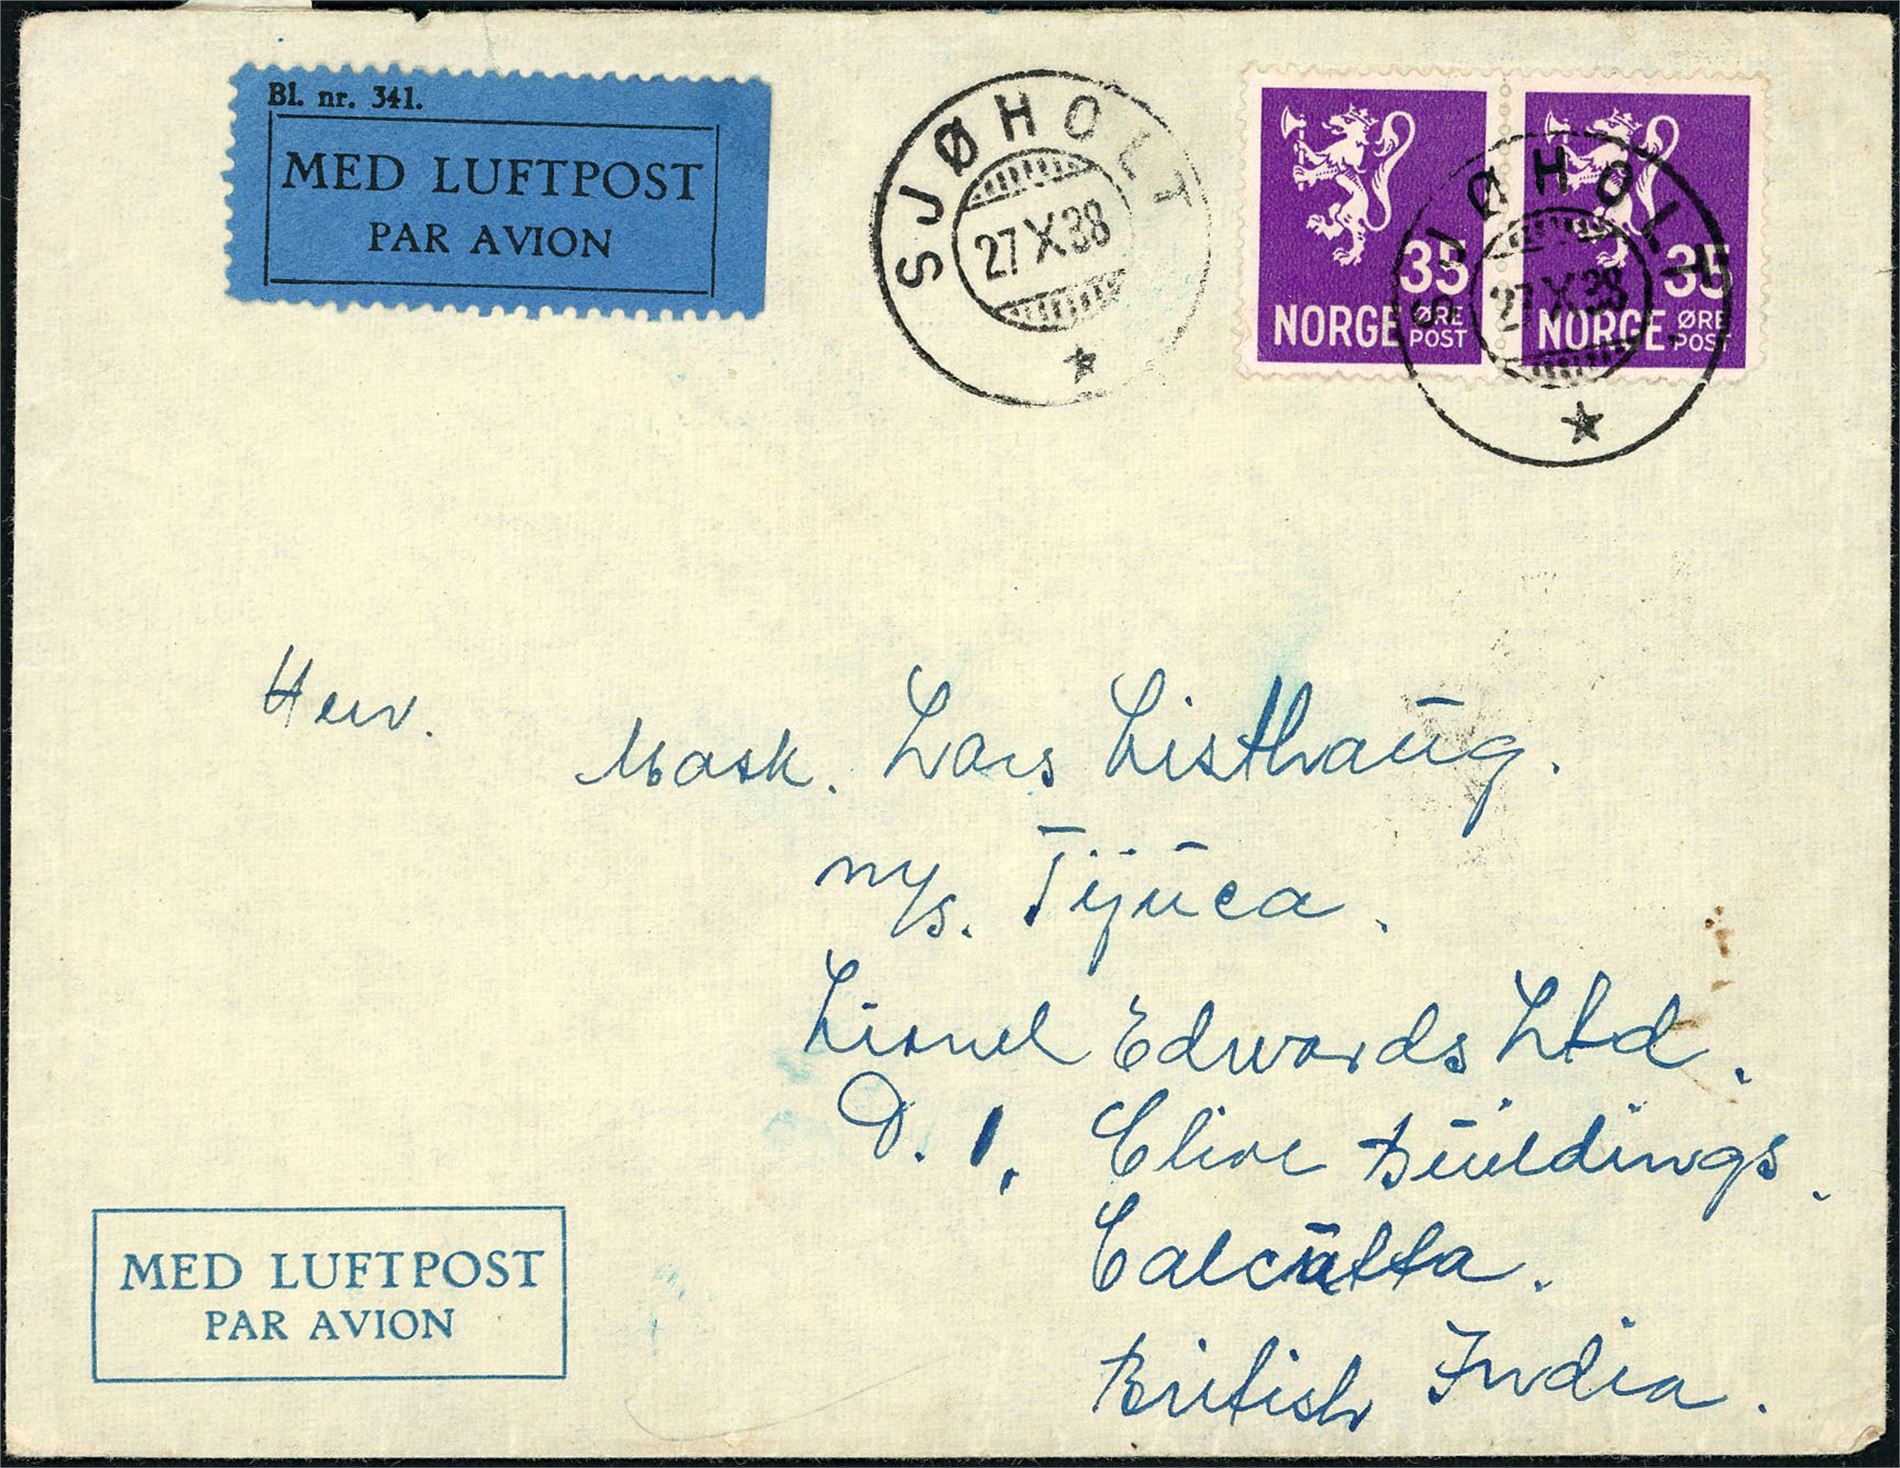 Bl. nr. 341.
MED LUFTPOST
PAR AVION
SJØHOLT
27 X 38
35
NORGE ØRE POST
35
NORGE ØRE POST
SJØHOLT
27 X 38
Herr.
Mask. Lars Listhaug.
m/s. Tijuca.
Lionel Edwards Ltd.
D. 1. Clive Buildings.
Calcutta.
British India.
MED LUFTPOST
PAR AVION